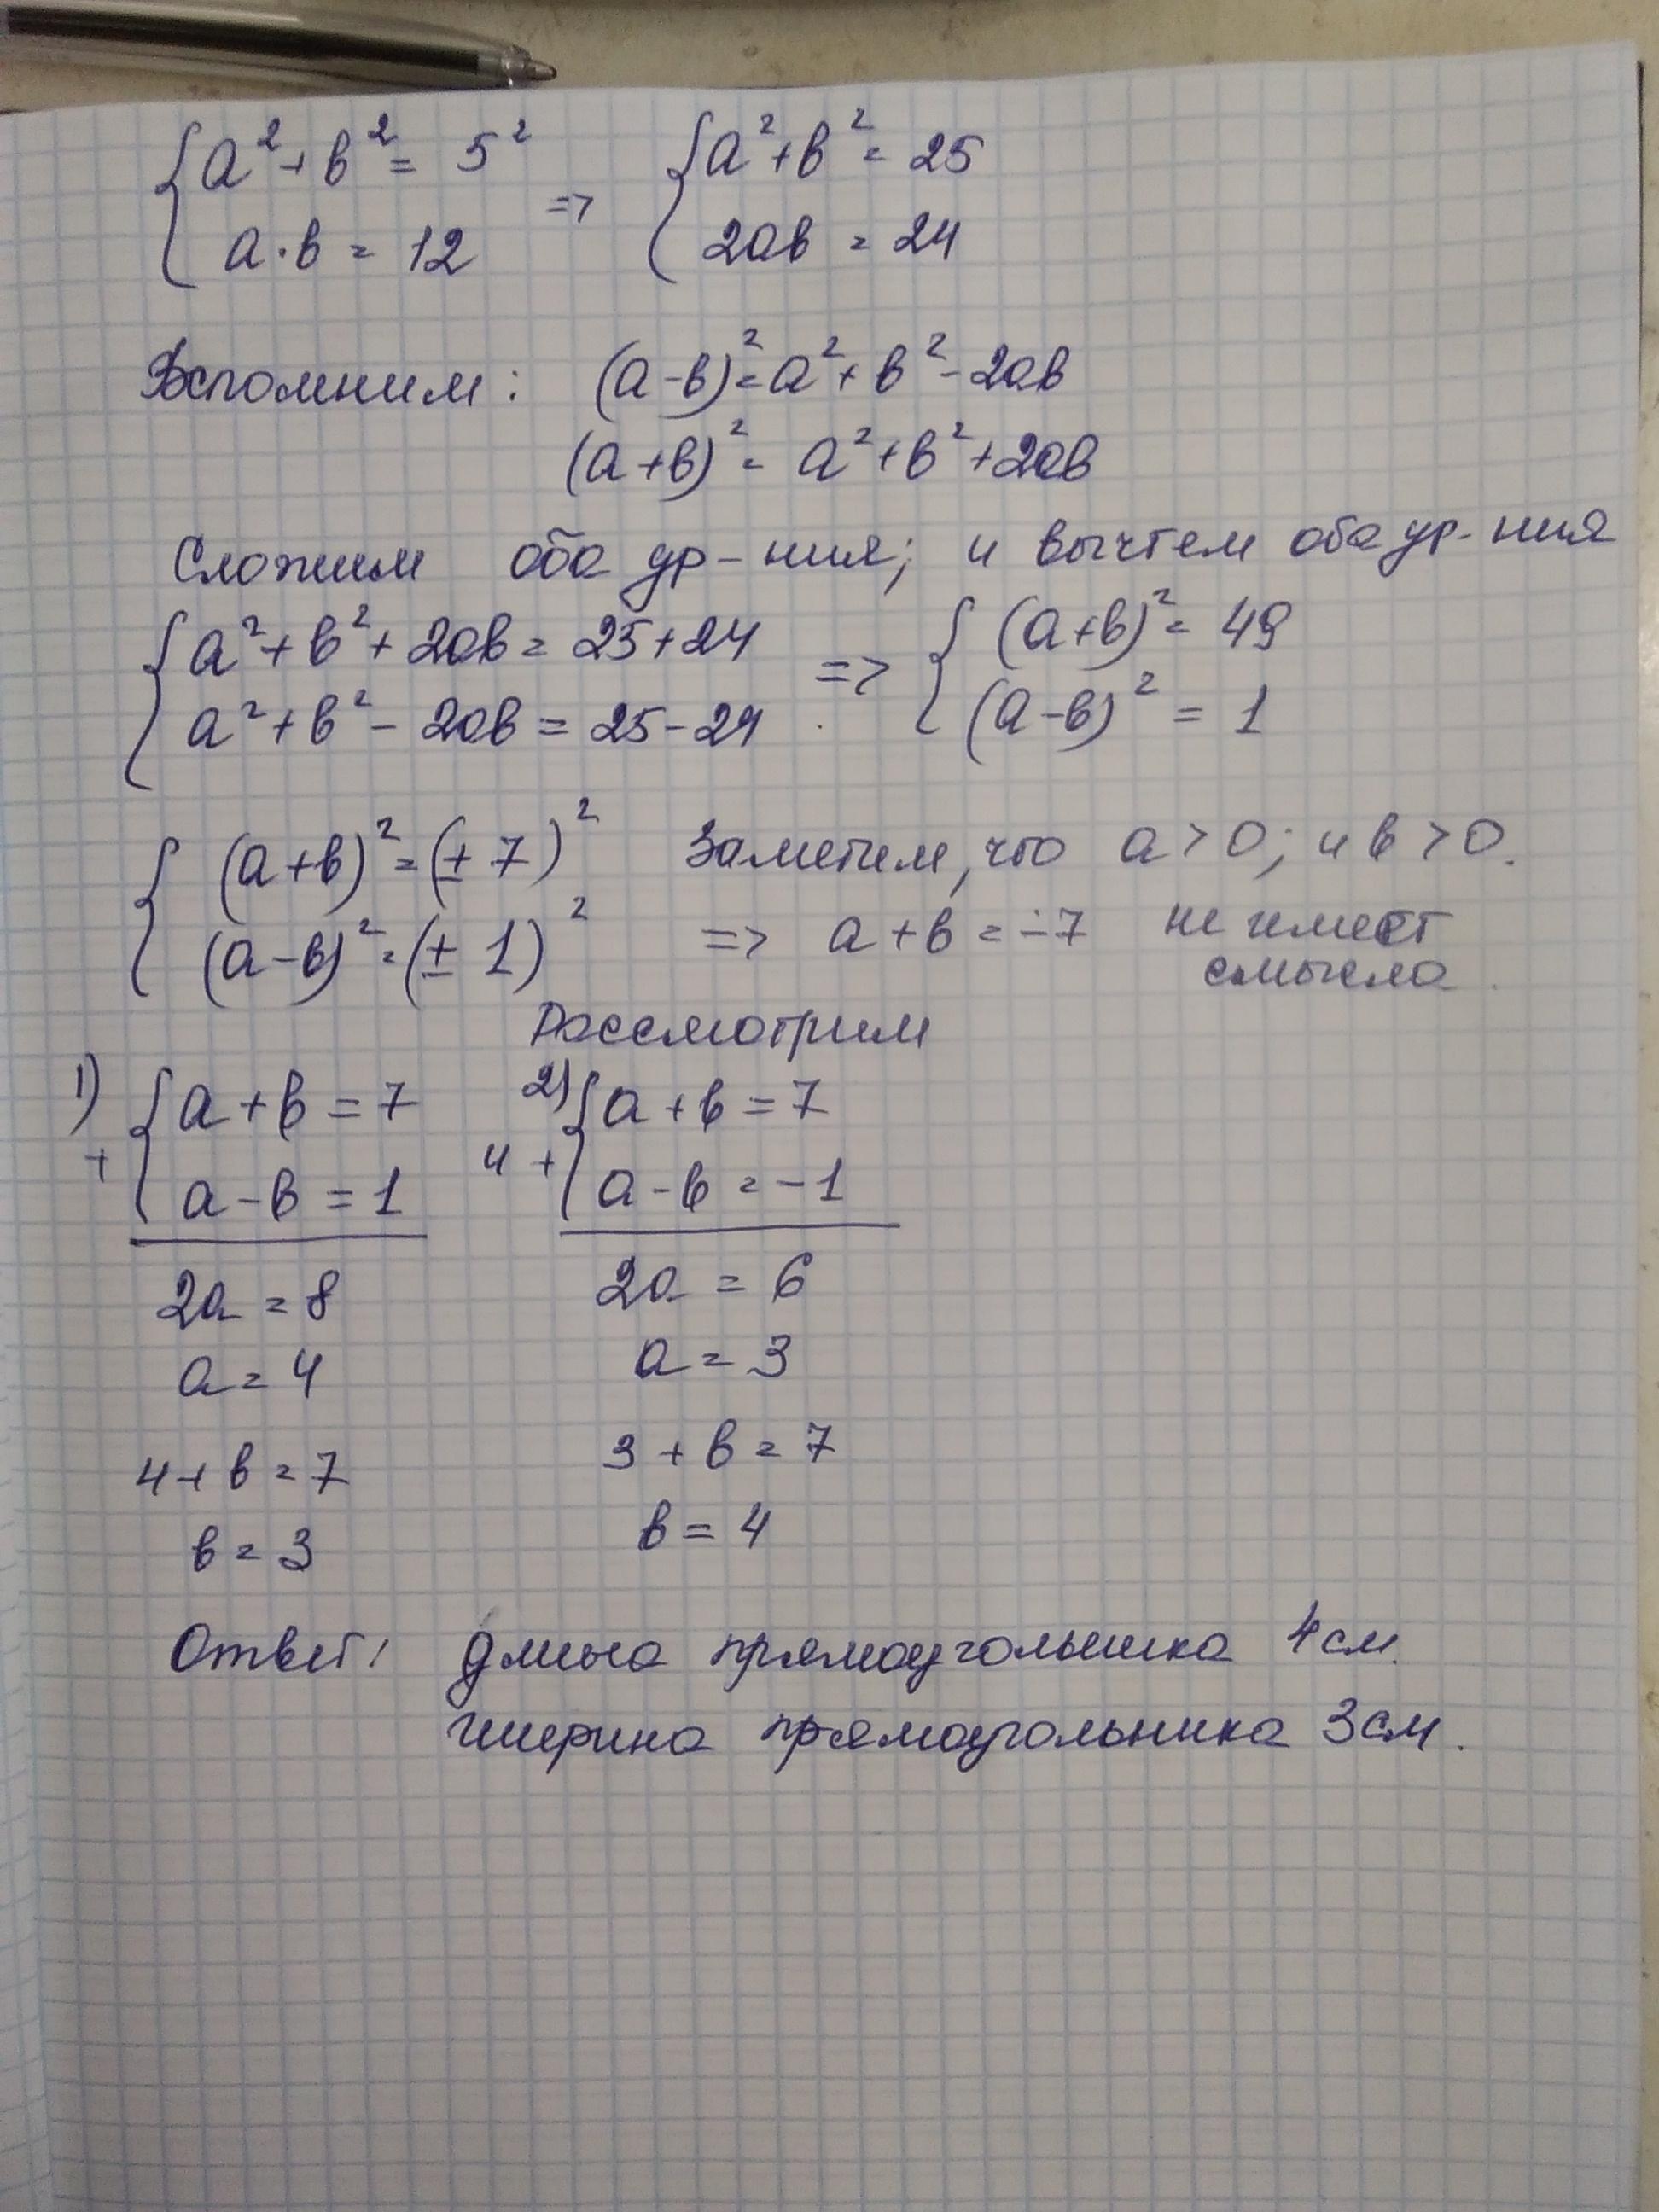 {a² + b² = 5² => {a² + b² = 25
a·b = 12 2ab = 24
Вспомним: (a-b)² = a² + b² - 2ab
(a+b)² = a² + b² + 2ab
Сложим оба ур-ния; и вычтем оба ур-ния
{a² + b² + 2ab = 25+24 => {(a+b)² = 49
a² + b² - 2ab = 25-24 (a-b)² = 1
{(a+b)² = (± 7)² Заметим, что a > 0; и b > 0.
(a-b)² = (± 1)² => a + b = -7 не имеет
смысла.
Рассмотрим
1) {a + b = 7 2) {a + b = 7
+ a - b = 1 и + a - b = -1
2a = 8 2a = 6
a = 4 a = 3
4 + b = 7 3 + b = 7
b = 3 b = 4
Ответ: длина прямоугольника 4 см.
ширина прямоугольника 3 см.